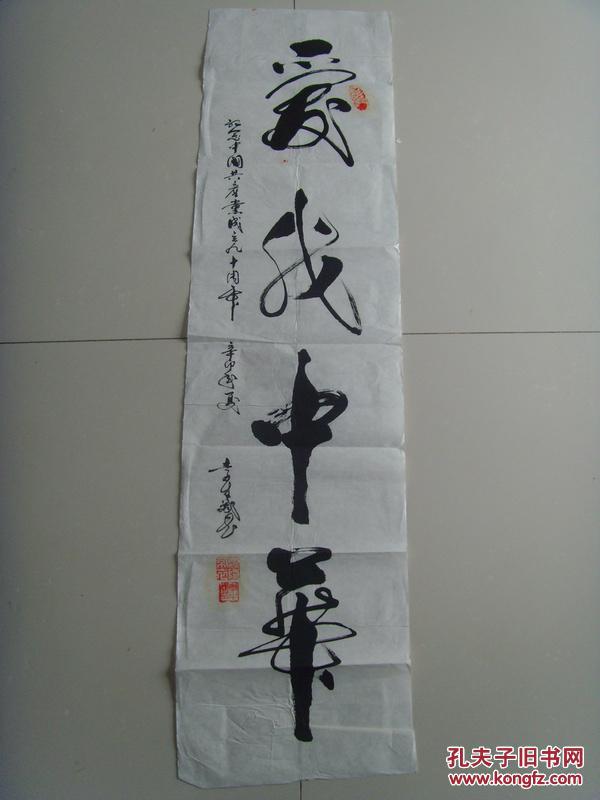 愛我中華
記念中國共產黨成立九十周年
辛卯年夏
孔夫子旧书网
www.kongfz.com